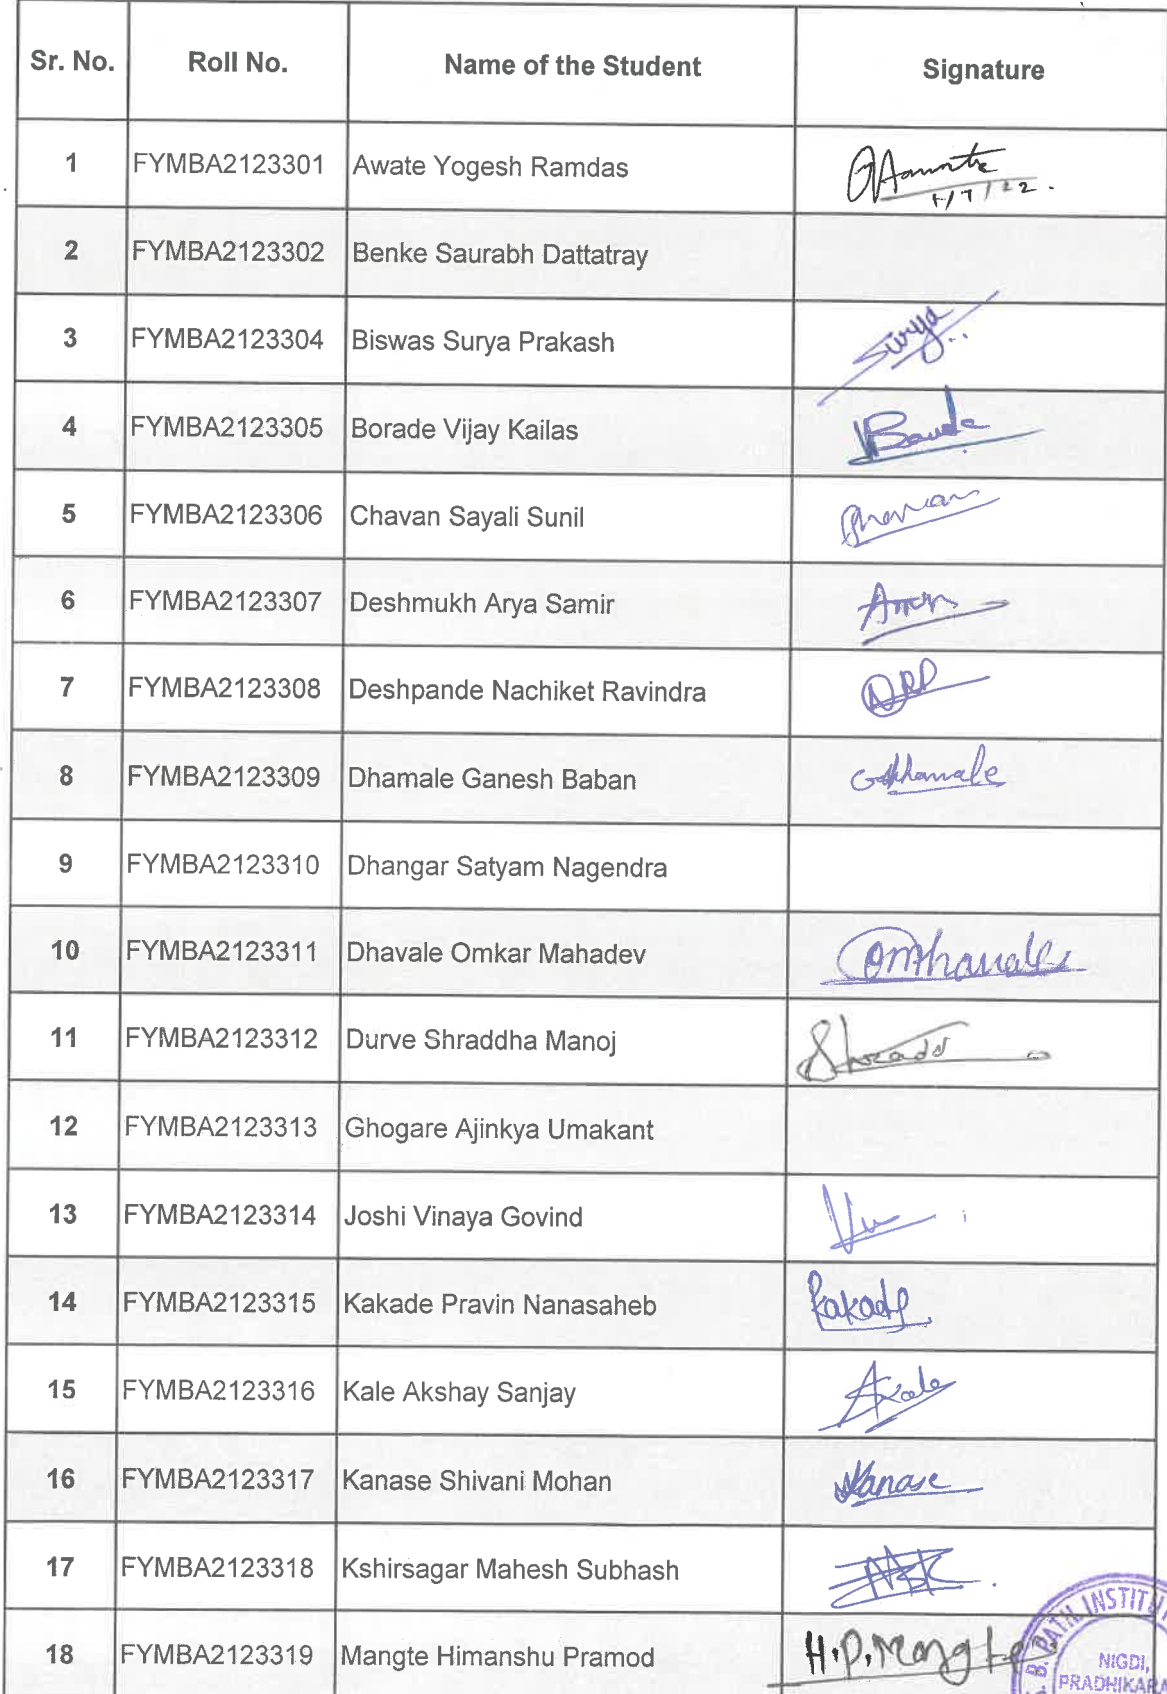 Sr. No. Roll No. Name of the Student Signature
1 FYMBA2123301 Awate Yogesh Ramdas
1/7/22.
2 FYMBA2123302 Benke Saurabh Dattatray
3 FYMBA2123304 Biswas Surya Prakash Surya
4 FYMBA2123305 Borade Vijay Kailas
5 FYMBA2123306 Chavan Sayali Sunil
6 FYMBA2123307 Deshmukh Arya Samir
7 FYMBA2123308 Deshpande Nachiket Ravindra
8 FYMBA2123309 Dhamale Ganesh Baban
9 FYMBA2123310 Dhangar Satyam Nagendra
10 FYMBA2123311 Dhavale Omkar Mahadev
11 FYMBA2123312 Durve Shraddha Manoj
12 FYMBA2123313 Ghogare Ajinkya Umakant
13 FYMBA2123314 Joshi Vinaya Govind
14 FYMBA2123315 Kakade Pravin Nanasaheb
15 FYMBA2123316 Kale Akshay Sanjay
16 FYMBA2123317 Kanase Shivani Mohan
17 FYMBA2123318 Kshirsagar Mahesh Subhash
18 FYMBA2123319 Mangte Himanshu Pramod H.P.Mangte
NIGDI,